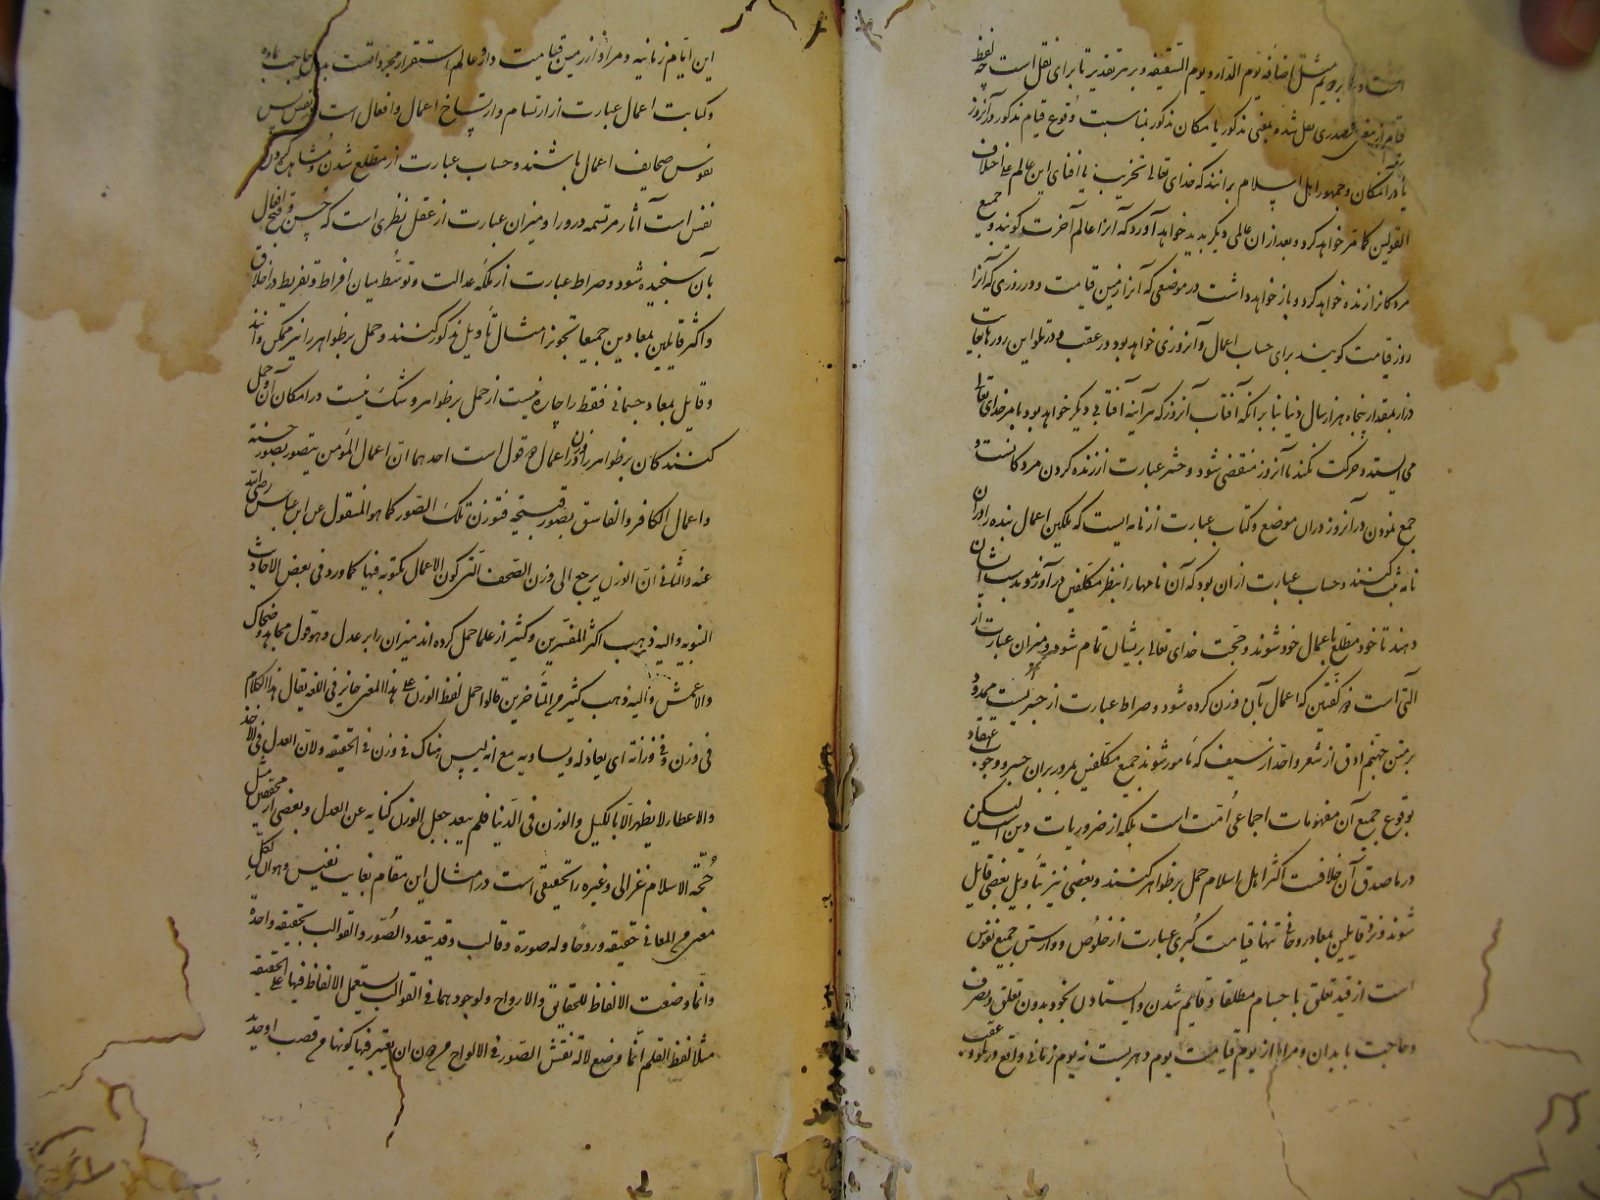 است و یا بر چشم مثل اضافه یوم الدار و یوم السقیفه و بر هر تقدیر تا برای نقل است چه لفظ
قیام از معنی مصدری نقل شد و بمعنی مذکور یا مکان مذکور بمناسبت وقوع قیام مذکور در آنروز
یا در آنمکان و جمهور اهل اسلام برانند که خدای تعالی تخریب یا افنای این عالم علی اختلاف
القولین کما مر خواهد کرد و بعد از ان عالمی دیگر پدید خواهد آورد که آنرا عالم آخرت گویند و جمیع
مردگانرا زنده خواهد کرد و باز خواهد داشت در موضعی که آنرا زمین قیامت و در روزی که آنرا
روز قیامت گویند برای حساب اعمال و آنروزی خواهد بود در عقب و در تلو این روزها
درازی بمقدار پنجاه هزار سال دنیا بنا بر آنکه آفتاب آنروز که هر آینه آفتابی دیگر خواهد بود بامر خدای تعالی
می ایستد و حرکت نکند تا آنروز منقضی شود و حشر عبارت از زنده کردن مردگانست و
جمع نمودن در آنروز در ان موضع و کتاب عبارت از نامه ایست که ملکین اعمال بنده را در ان
نامه ثبت کنند و حساب عبارت از ان بود که آن نامها را بنظر مکلفین در آورند و بدست ایشان
دهند تا خود مطلع باعمال خود شوند و حجت خدای تعالی بریشان تمام شود و میزان عبارت از
آلتی است ذو کفتین که اعمال بآن وزن کرده شود و صراط عبارت از جسریست ممدود
بر متن جهنم ادق از شعر و احد از سیف که مامور شوند جمیع مکلفین بمرور بران جسر و وجوب اعتقاد
بوقوع جمیع آن مفهومات اجماعی امت است بلکه از ضروریات دین است لیکن
در ماصدق آن خلافست اکثر اهل اسلام حمل بر ظواهر کنند و بعضی نیز بتاویل بعضی قایل
شوند و نزد قایلین بمعاد روحانی تنها قیامت کبری عبارت از خلوص و وارستن جمیع نفوس
است از قید تعلق باجسام مطلقا و قایم شدن و ایستادن بخود بدون تعلق و تصرف
و حاجت بابدان و مراد از یوم قیامت یوم دهریست نه یوم زمانی واقع در تلو و عقب
این ایام زمانیه و مراد از زمین قیامت و دار عالم استقرار مجرداتست
و کتابت اعمال عبارت از ارتسام و ارتساخ اعمال و افعال است در نفس پس
نفوس صحایف اعمال باشند و حساب عبارت از مطلع شدن و مشاهده کردن
نفس است آثار مرتسمه در و را و میزان عبارت از عقل نظری است که حسن و قبح افعال
بآن سنجیده شود و صراط عبارت از ملکه عدالت و توسط میان افراط و تفریط در اخلاق
و اکثر قایلین بمعادین جمیعا تجویز امثال تاویل مذکور کنند و حمل بر ظواهر را نیز ممکن دانند
و قایل بمعاد جسمانی فقط را چاره نیست از حمل بر ظواهر و شک نیست در امکان آن و حمل
کنندکان بر ظواهر را در وزن اعمال دو قول است احدهما ان اعمال المؤمن یتصور بصور حسنة
و اعمال الکافر و الفاسق بصور قبیحه فتوزن تلک الصور کما هو المنقول عن ابن عباس رضی الله
عنه و الثانی ان الوزن یرجع الی وزن الصحف التی یکون الاعمال مکتوبه فیها کما ورد فی بعض الاحادیث
النبویه و الیه ذهب اکثر المفسرین و کثیر از علما حمل کرده اند میزان را بر عدل و هو قول مجاهد و ضحاک
و الاعمش و الیه ذهب کثیر من المتاخرین قالوا حمل لفظ الوزن علی هذا المعنی جایز فی اللغه یقال هذا الکلام
فی وزن و فی وزانه ای یعادله و یساویه مع انه لیس هناک فی وزن فی الحقیقه و لان العدل فی الاخذ
و الاعطا لا یظهر الا بالکیل و الوزن فی الدنیا فلم یبعد جعل الوزن کنایه عن العدل و بعضی از محققین مثل
حجة الاسلام غزالی و غیره را تحقیقی است در امثال این مقام بغایت نفیس و هو ان لکل
معنی من المعانی حقیقه و روحا و له صورة و قالب و قد یتعدد الصور و القوالب بحقیقه واحدة
و انما وضعت الالفاظ للحقایق و الارواح و لوجودهما فی القوالب یستعمل الالفاظ فیها علی الحقیقه
مثلا لفظ القلم انما وضع لآلة نقش الصور فی الالواح من دون ان یعتبر فیها کونها من قصب او حدید